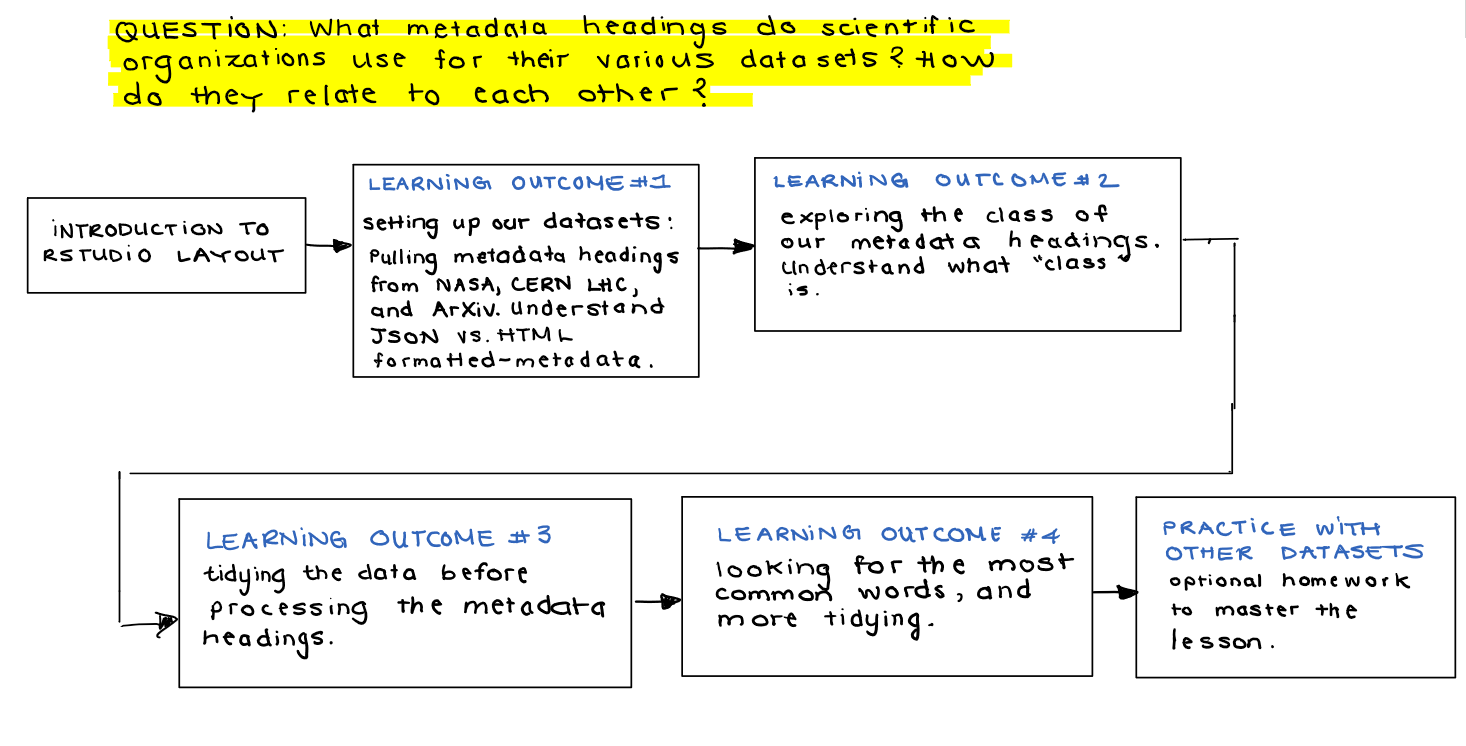 QUESTION: What metadata headings do scientific
organizations use for their various datasets? How
do they relate to each other?
INTRODUCTION TO
RSTUDIO LAYOUT
LEARNING OUTCOME #1
setting up our datasets:
Pulling metadata headings
from NASA, CERN LHC,
and ArXiv. Understand
JSON vs. HTML
formatted-metadata.
LEARNING OUTCOME #2
exploring the class of
our metadata headings.
Understand what "class"
is.
LEARNING OUTCOME #3
tidying the data before
processing the metadata
headings.
LEARNING OUTCOME #4
looking for the most
common words, and
more tidying.
PRACTICE WITH
OTHER DATASETS
optional homework
to master the
lesson.